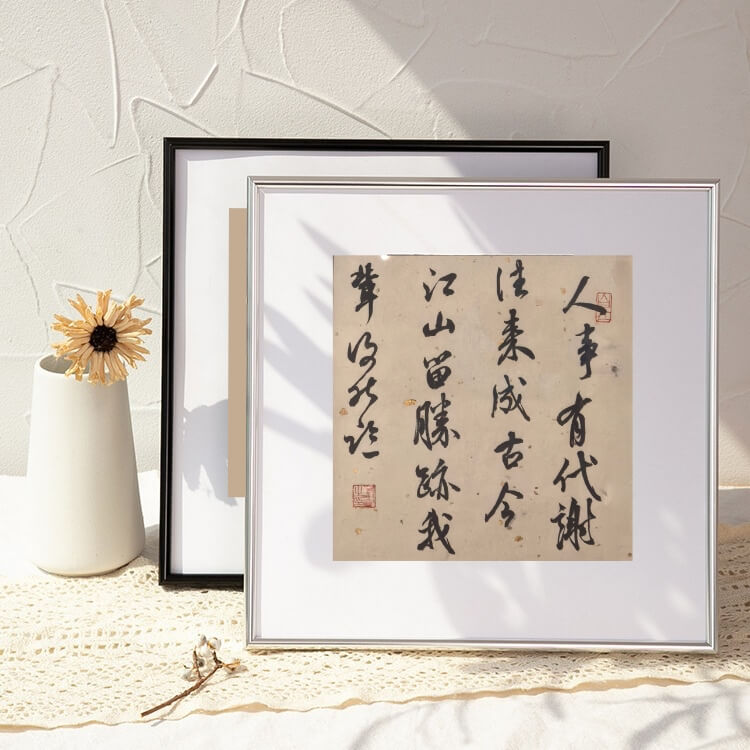 人事有代謝
往来成古今
江山留勝跡我
輩復登臨